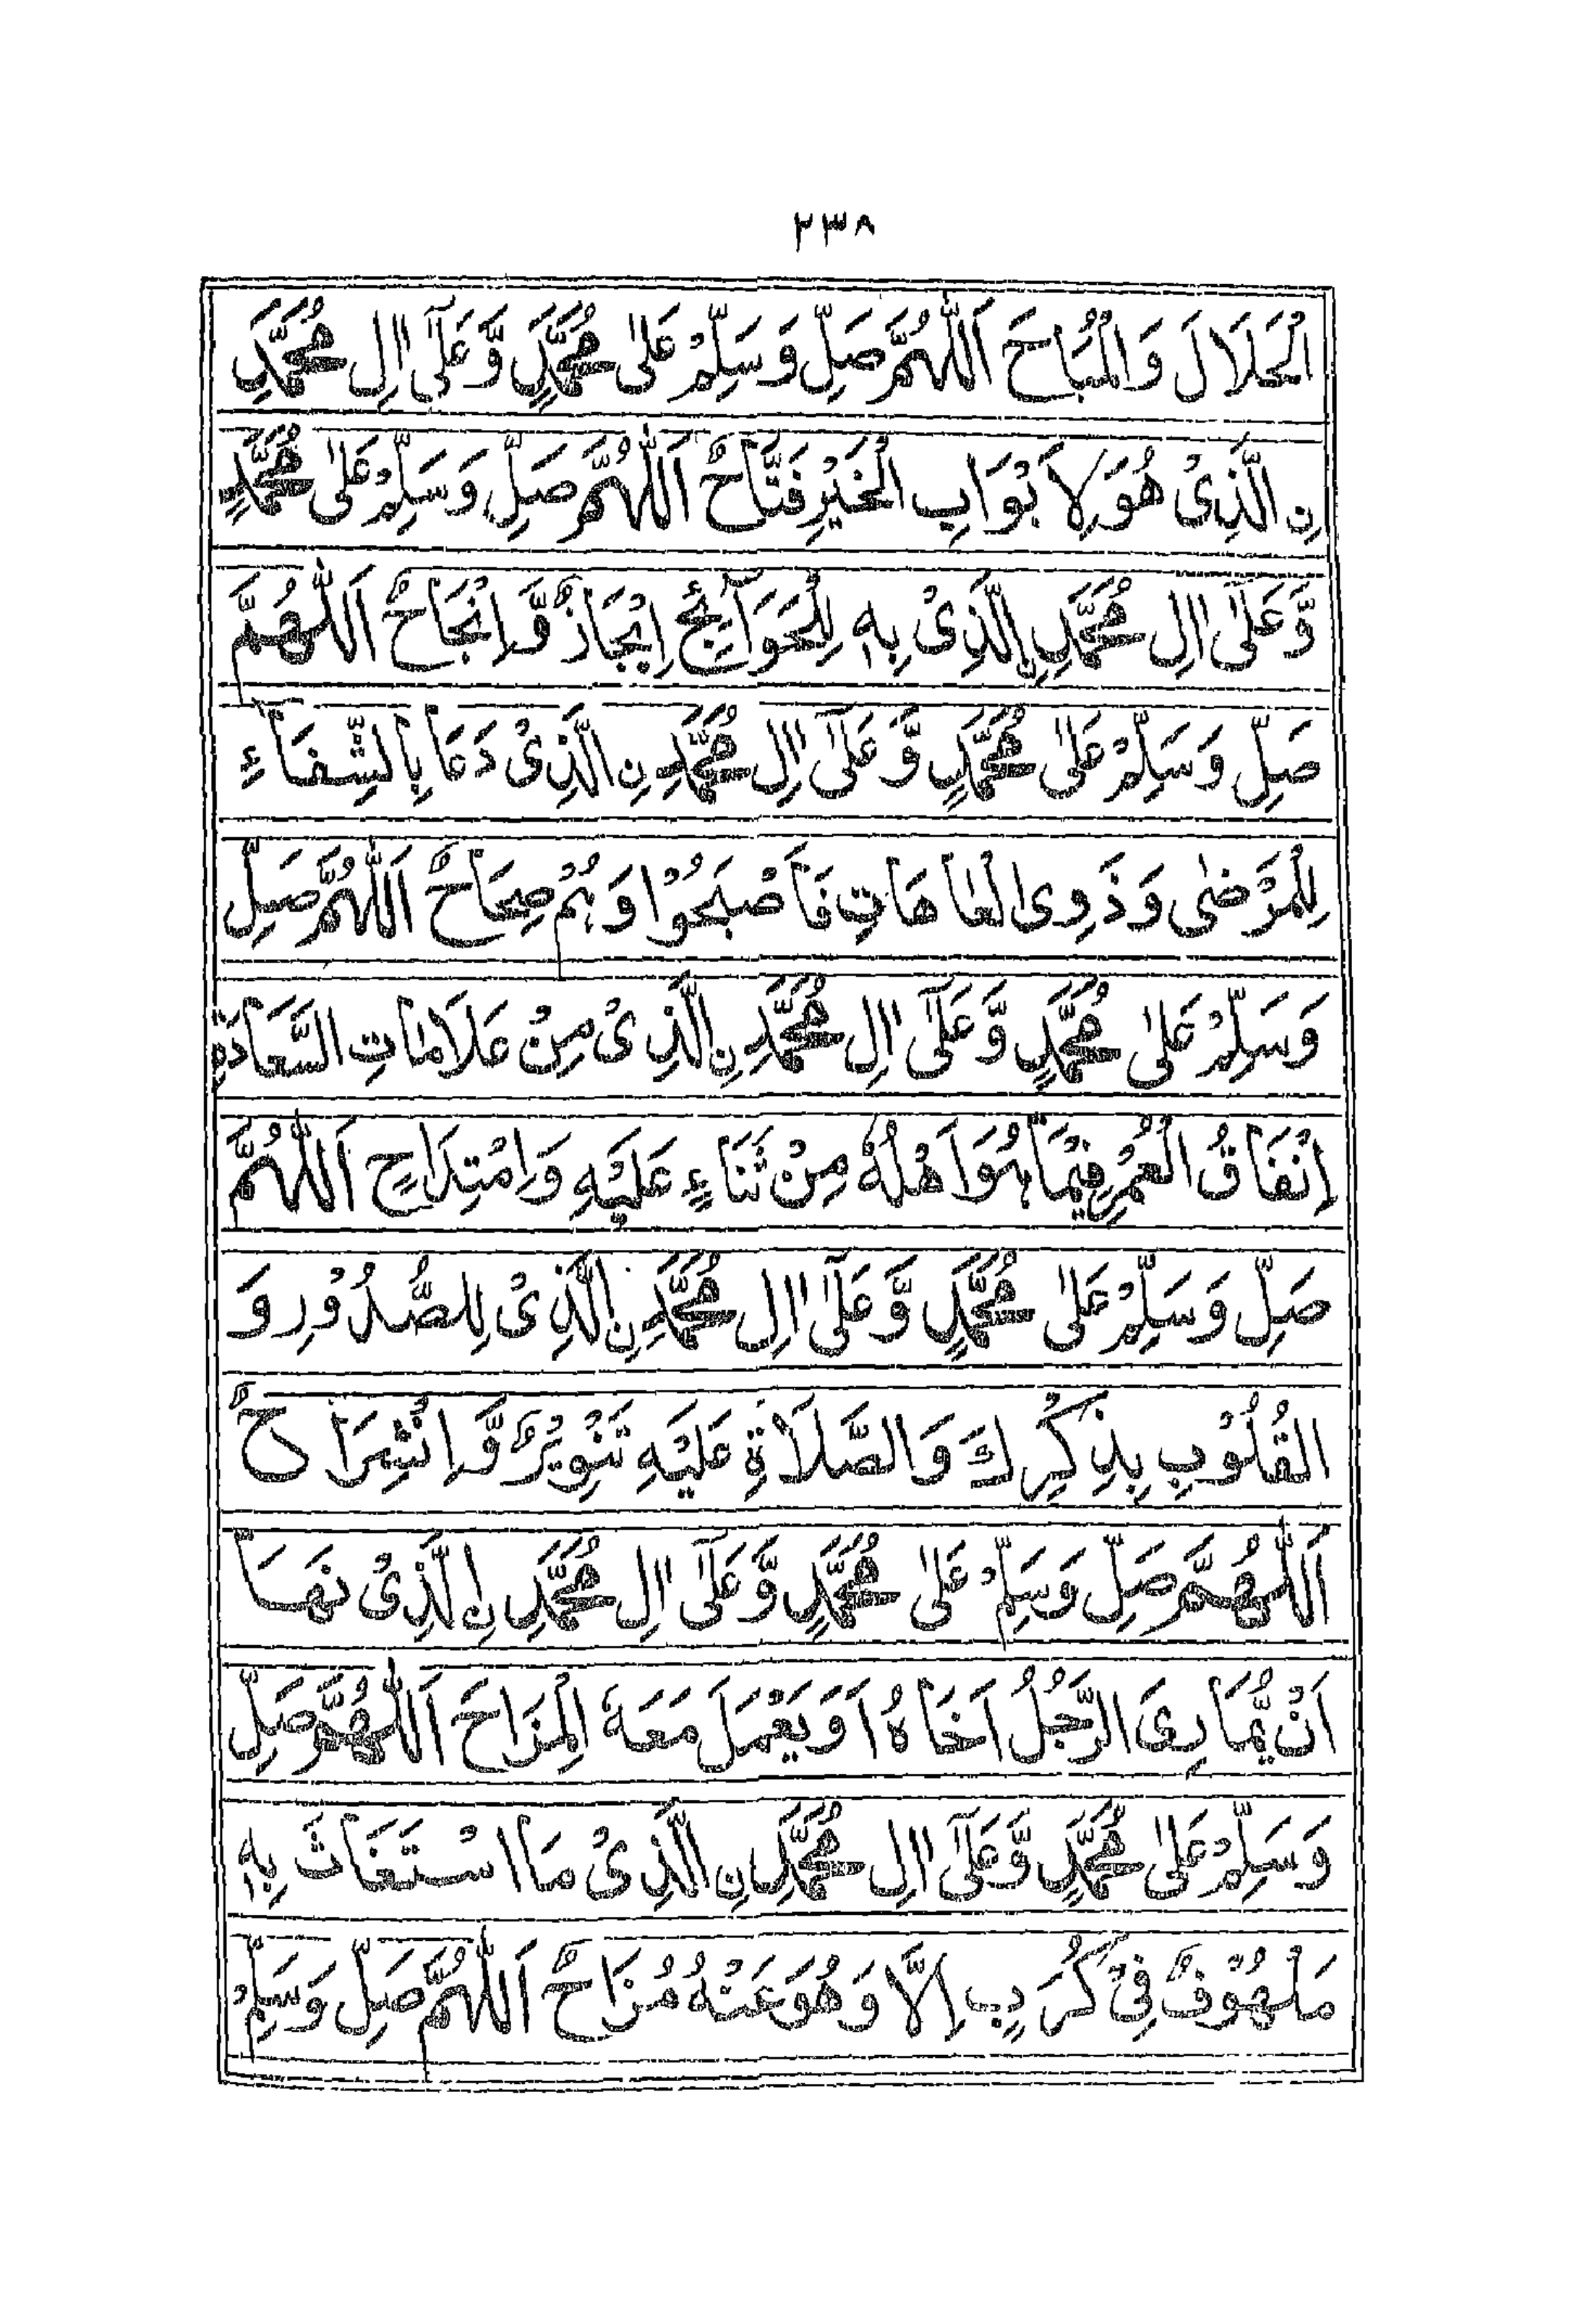 ٢٣٨
الْحَلَالَ وَالْمُبَاحَ اَللّٰهُمَّ صَلِّ وَسَلِّمْ عَلٰى مُحَمَّدٍ وَّعَلٰٓى اٰلِ مُحَمَّدِ
نِ الَّذِىْ هُوَ لِاَبْوَابِ الْخَيْرِ فَتَّاحٌ اَللّٰهُمَّ صَلِّ وَسَلِّمْ عَلٰى مُحَمَّدٍ
وَّعَلٰٓى اٰلِ مُحَمَّدِ نِ الَّذِىْ بِهٖ لِلْحَوَآئِجِ اِنْجَازٌ وَّاِنْجَاحٌ اَللّٰهُمَّ
صَلِّ وَسَلِّمْ عَلٰى مُحَمَّدٍ وَّعَلٰٓى اٰلِ مُحَمَّدِ نِ الَّذِىْ دَعَا بِالشِّفَآءِ
لِلْمَرْضٰى وَذَوِى الْعَاهَاتِ فَاَصْبَحُوْا وَهُمْ صِحَاحٌ اَللّٰهُمَّ صَلِّ
وَسَلِّمْ عَلٰى مُحَمَّدٍ وَّعَلٰٓى اٰلِ مُحَمَّدِ نِ الَّذِىْ مِنْ عَلَامَاتِ السَّعَادَةِ
اِنْفَاقُ الْعُمُرِ فِيْمَا هُوَ اَهْلُهٗ مِنْ ثَنَاءٍ عَلَيْهِ وَامْتِدَاحٍ اَللّٰهُمَّ
صَلِّ وَسَلِّمْ عَلٰى مُحَمَّدٍ وَّعَلٰٓى اٰلِ مُحَمَّدِ نِ الَّذِىْ لِلصُّدُوْرِ وَ
الْقُلُوْبِ بِذِكْرِكَ وَالصَّلَاةِ عَلَيْهِ تَنْوِيْرٌ وَّاِنْشِرَاحٌ
اَللّٰهُمَّ صَلِّ وَسَلِّمْ عَلٰى مُحَمَّدٍ وَّعَلٰٓى اٰلِ مُحَمَّدِ نِ الَّذِىْ نَهَا
اَنْ يُّمَارِىَ الرَّجُلُ اَخَاهُ اَوَ يَعْمَلَ مَعَهٗ الْمِزَاحَ اَللّٰهُمَّ صَلِّ
وَسَلِّمْ عَلٰى مُحَمَّدٍ وَّعَلٰٓى اٰلِ مُحَمَّدِ نِ الَّذِىْ مَا اسْتَغَاثَ بِهٖ
مَلْهُوْفٌ فِىْ كُرَبٍ اِلَّا وَهُوَ عَنْهُ مُزَاحٌ اَللّٰهُمَّ صَلِّ وَسَلِّمْ